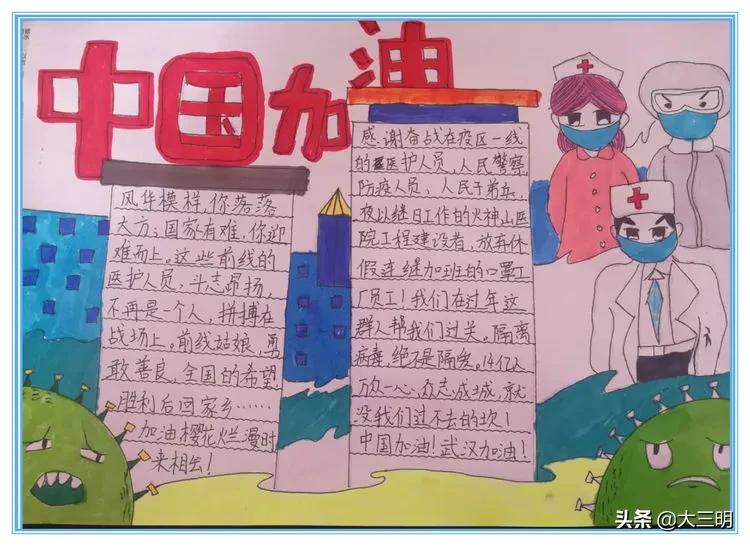 中国加油
风华模样,你落落
大方;国家有难,你迎
难而上。这些前线的
医护人员,斗志昂扬
不再是一个人,拼搏在
战场上。前线姑娘,勇
敢善良,全国的希望
胜利后回家乡……
加油樱花烂漫时
来相会!
感谢奋战在疫区一线
的医护人员,人民警察
防疫人员、人民子弟兵,
夜以继日工作的火神山医
院工程建设者,放弃休
假连继加班的口罩工
厂员工!我们在过年这
群人帮我们过关。隔离
病毒,绝不是隔爱。14亿人
万众一心,众志成城,就
没我们过不去的坎!
中国加油!武汉加油!
头条 @大三明